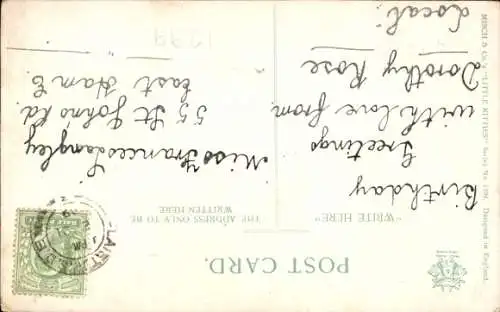 POST CARD.
"WRITE HERE"
THE ADDRESS ONLY TO BE
WRITTEN HERE
Birthday
Greetings
with love from
Dorothy Rose
Local.
Miss Frances Langley
55 St Johns Rd.
East Ham E.
MISCH & Co's "LITTLE KITTIES" Series No. Designed in England.
1299